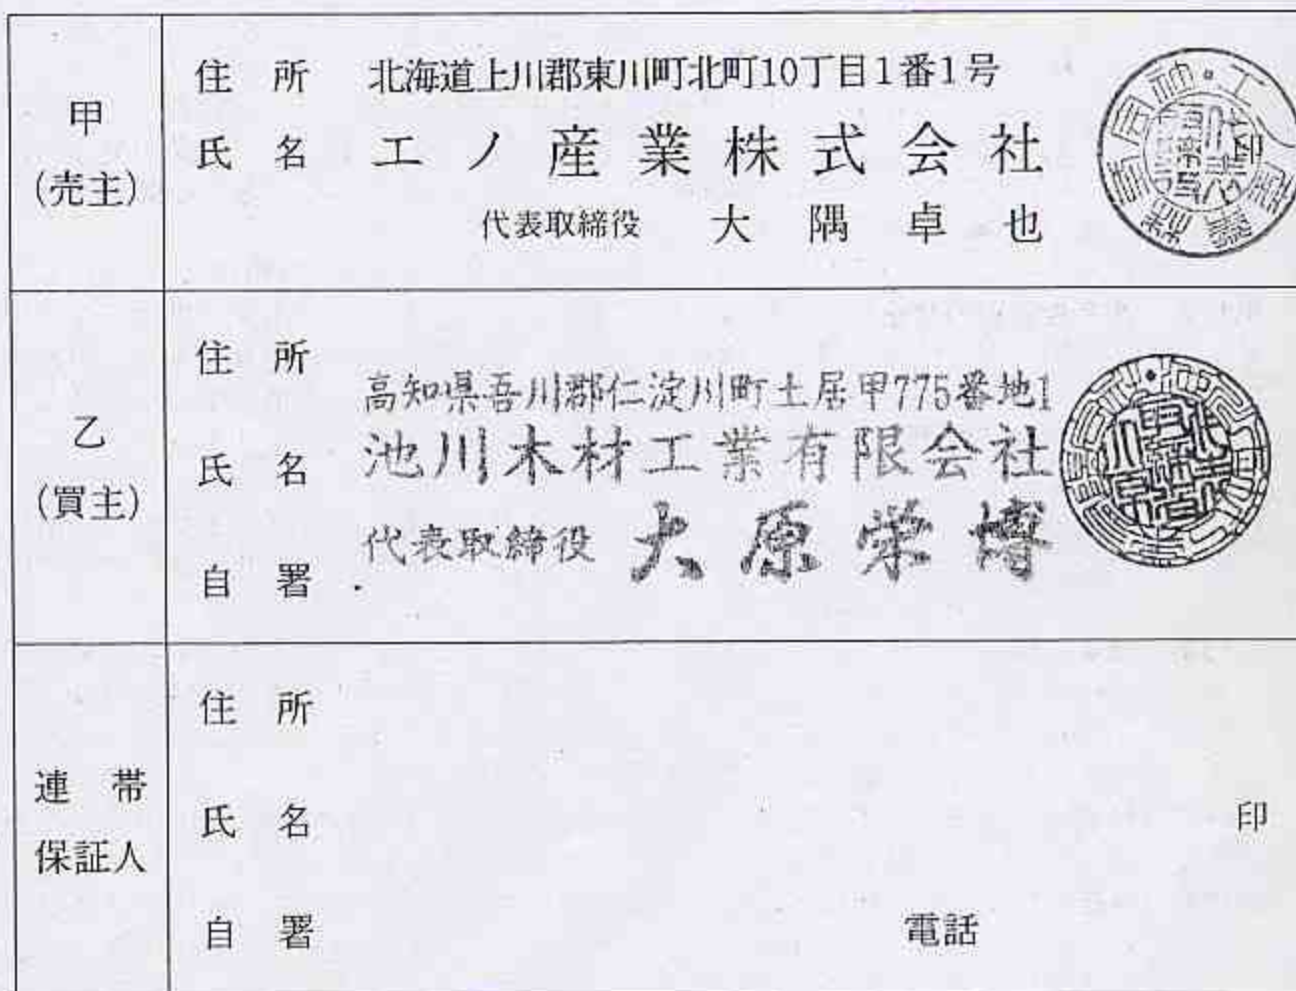 甲
(売主)
住所 北海道上川郡東川町北町10丁目1番1号
氏名 エノ産業株式会社
代表取締役 大隅卓也
乙
(買主)
住所
高知県吾川郡仁淀川町土居甲775番地1
氏名 池川木材工業有限会社
代表取締役 大原栄博
自署
連帯
保証人
住所
氏名 印
自署 電話